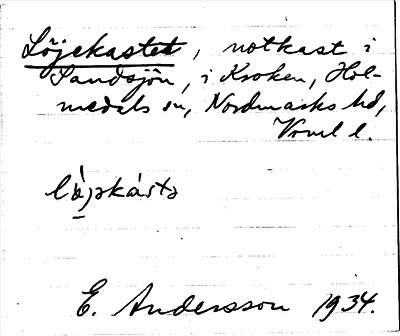 Löjekastet, notkast i
Sandsjön, i Kroken, Hol-
medals sn, Nordmarks hd,
Vrml l.
lö̀jəkástə
E. Andersson 1934.